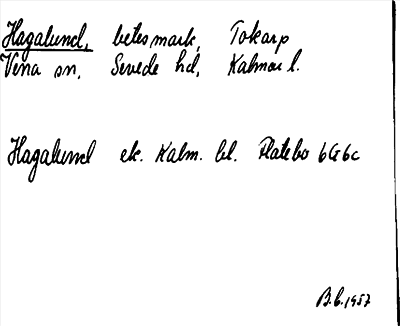 Hagalund, betesmark, Tokarp
Vena sn, Sevede hd, Kalmar l.
Hagalund ek. Kalm. bl. Flatebo 6G6c
B.b. 1957